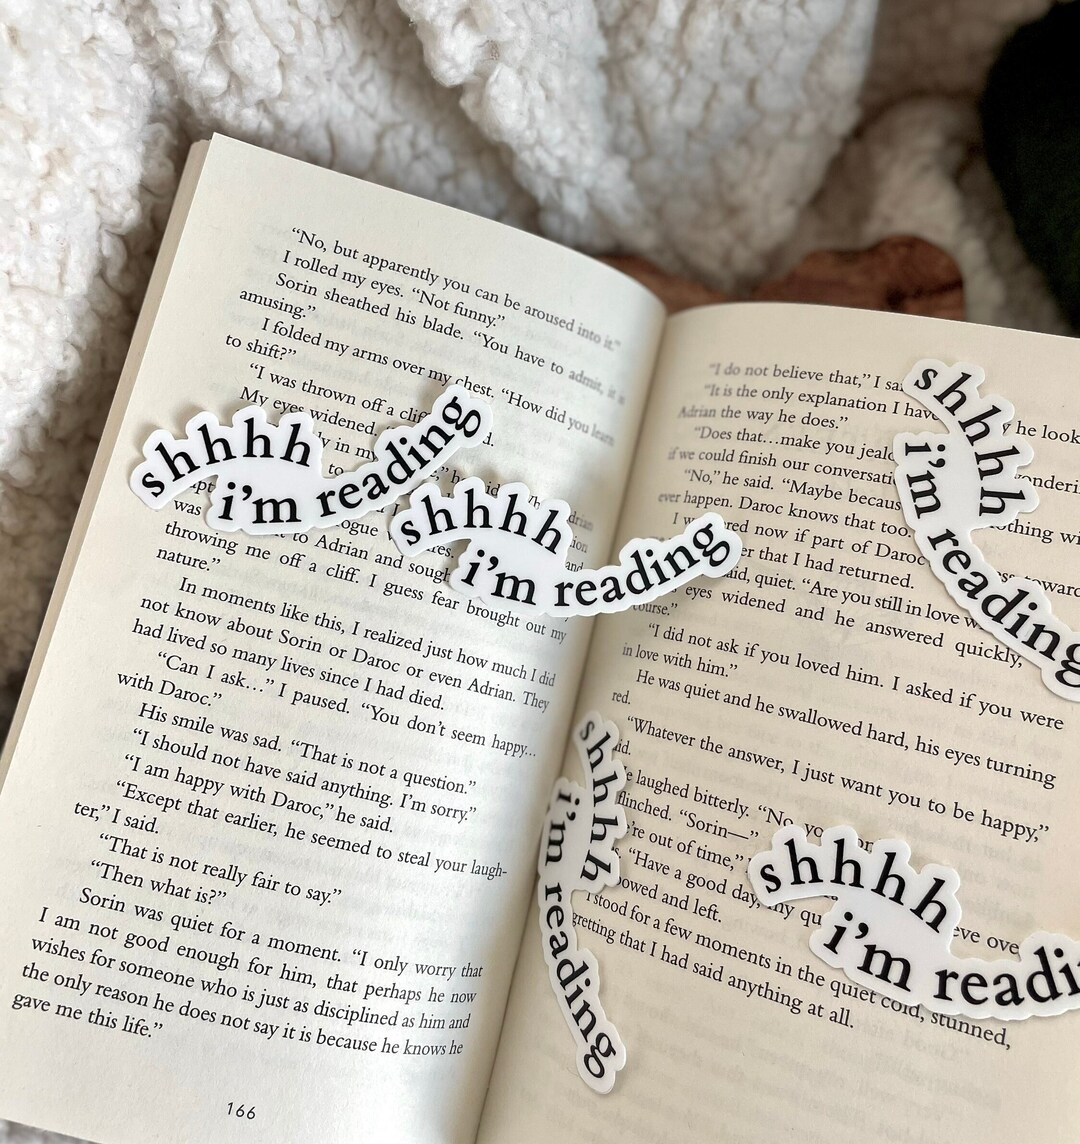 “No, but apparently you can be aroused into it.”
I rolled my eyes. “Not funny.”
Sorin sheathed his blade. “You have to admit, it is
amusing.”
I folded my arms over my chest. “How did you learn
to shift?”
“I was thrown off a cliff
My eyes widened.
was to Adrian and sough
throwing me off a cliff. I guess fear brought out my
nature.”
In moments like this, I realized just how much I did
not know about Sorin or Daroc or even Adrian. They
had lived so many lives since I had died.
“Can I ask…” I paused. “You don’t seem happy…
with Daroc.”
His smile was sad. “That is not a question.”
“I should not have said anything. I’m sorry.”
“I am happy with Daroc,” he said.
“Except that earlier, he seemed to steal your laugh-
ter,” I said.
“That is not really fair to say.”
“Then what is?”
Sorin was quiet for a moment. “I only worry that
I am not good enough for him, that perhaps he now
wishes for someone who is just as disciplined as him and
the only reason he does not say it is because he knows he
gave me this life.”
166
“I do not believe that,” I sa
“It is the only explanation I have he look
Adrian the way he does.”
“Does that…make you jealo
if we could finish our conversati
“No,” he said. “Maybe becaus othing wi
ever happen. Daroc knows that too.
red now if part of Daroc
er that I had returned.
aid, quiet. “Are you still in love w
eyes widened and he answered quickly,
course.”
“I did not ask if you loved him. I asked if you were
in love with him.”
He was quiet and he swallowed hard, his eyes turning
red.
“Whatever the answer, I just want you to be happy,”
aid.
e laughed bitterly. “No, yo
flinched. “Sorin—”
’re out of time,”
“Have a good day, my qu eve ove
bowed and left.
I stood for a few moments in the quiet cold, stunned,
gretting that I had said anything at all.
shhhh
i’m reading
shhhh
i’m reading
shhhh
i’m reading
shhhh
i’m reading
shhhh
i’m readi